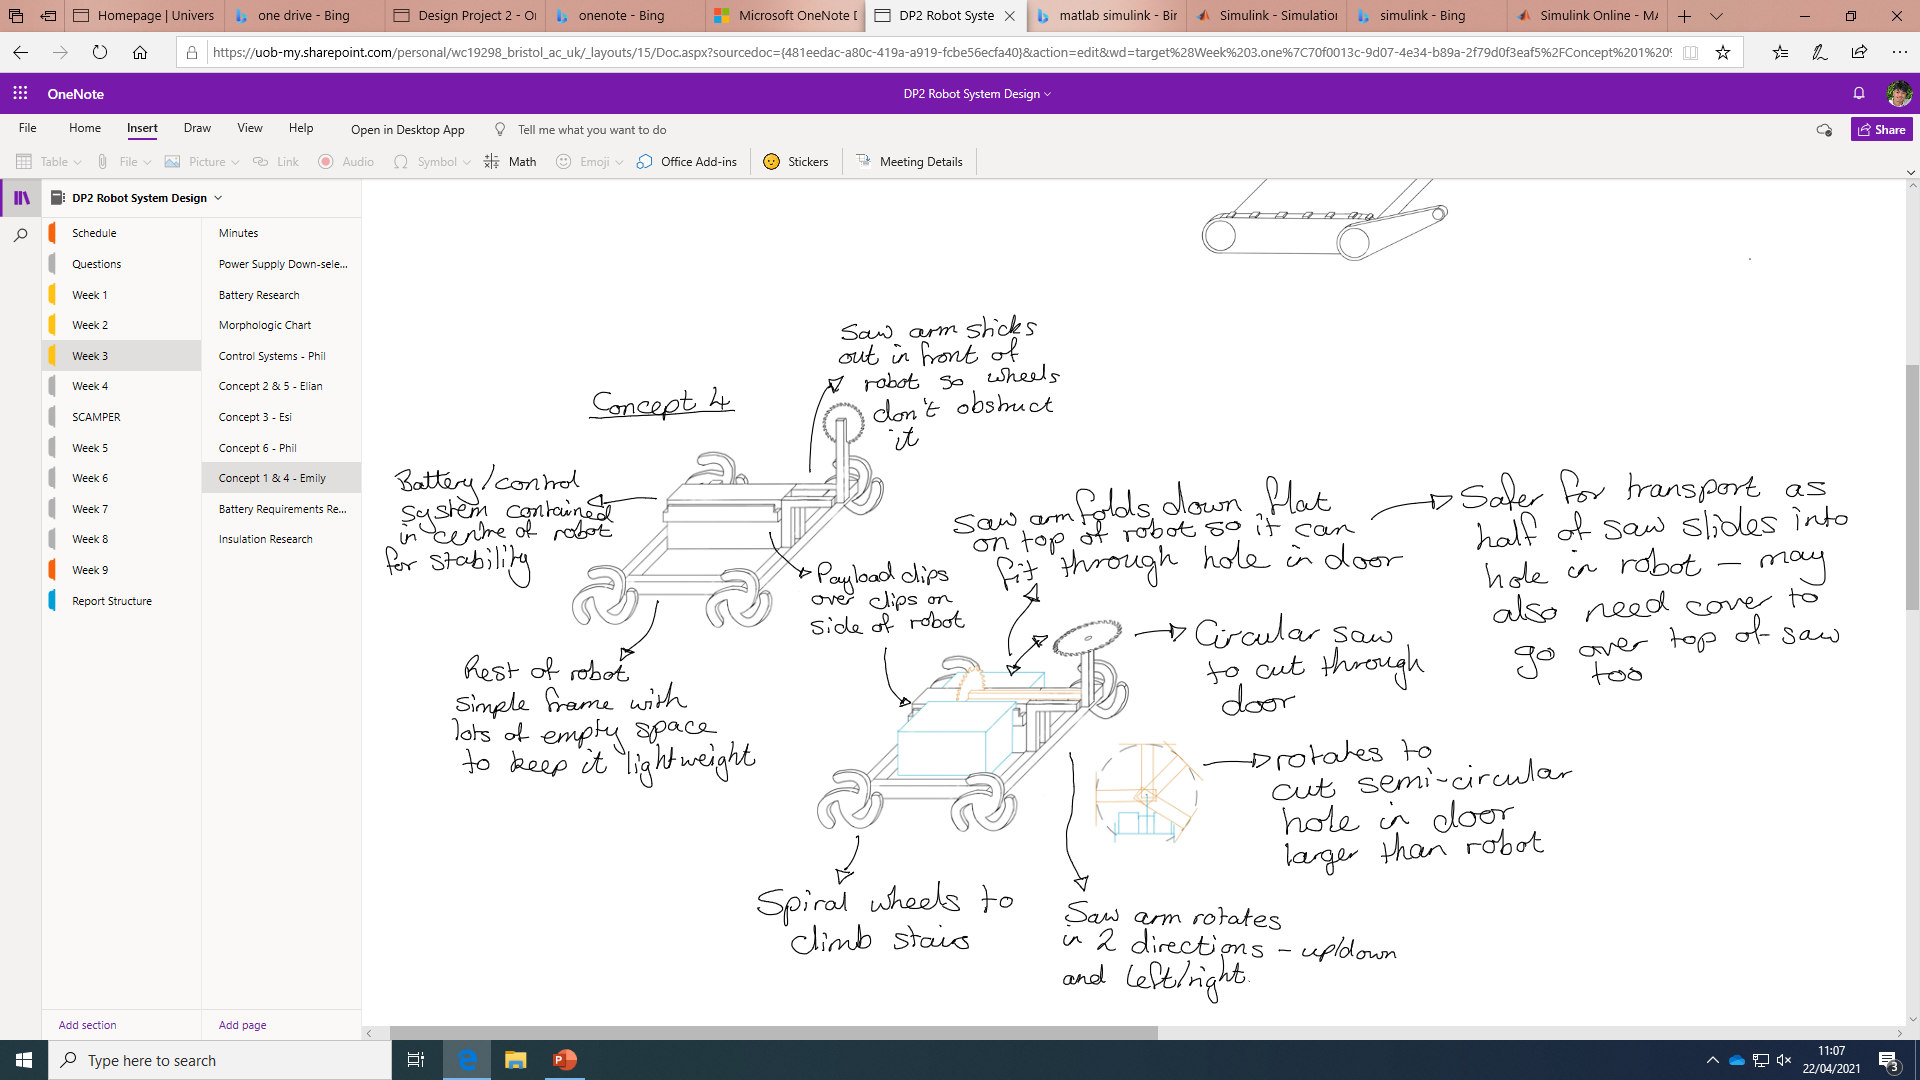 Homepage | Univers
one drive - Bing
Design Project 2 - On
onenote - Bing
Microsoft OneNote D
DP2 Robot Syste
matlab simulink - Bin
Simulink - Simulation
simulink - Bing
Simulink Online - MA
https://uob-my.sharepoint.com/personal/wc19298_bristol_ac_uk/_layouts/15/Doc.aspx?sourcedoc={481eedac-a80c-419a-a919-fcbe56ecfa40}&action=edit&wd=target%28Week%203.one%7C70f0013c-9d07-4e34-b89a-2f79d0f3eaf5%2FConcept%201%20%
OneNote
DP2 Robot System Design
File Home Insert Draw View Help Open in Desktop App Tell me what you want to do
Share
Table File Picture Link Audio Symbol Math Emoji Office Add-ins Stickers Meeting Details
DP2 Robot System Design
Schedule
Questions
Week 1
Week 2
Week 3
Week 4
SCAMPER
Week 5
Week 6
Week 7
Week 8
Week 9
Report Structure
Add section
Minutes
Power Supply Down-sele...
Battery Research
Morphologic Chart
Control Systems - Phil
Concept 2 & 5 - Elian
Concept 3 - Esi
Concept 6 - Phil
Concept 1 & 4 - Emily
Battery Requirements Re...
Insulation Research
Add page
Concept 4
Saw arm sticks
out in front of
robot so wheels
don't obstruct
it
Battery/control
system contained
in centre of robot
for stability
Payload clips
over clips on
side of robot
Rest of robot
simple frame with
lots of empty space
to keep it lightweight
Saw arm folds down flat
on top of robot so it can
fit through hole in door
Safer for transport as
half of saw slides into
hole in robot – may
also need cover to
go over top of saw
too
Circular saw
to cut through
door
rotates to
cut semi-circular
hole in door
larger than robot
Spiral wheels to
climb stairs
Saw arm rotates
in 2 directions - up/down
and left/right.
Type here to search
11:07
22/04/2021
3